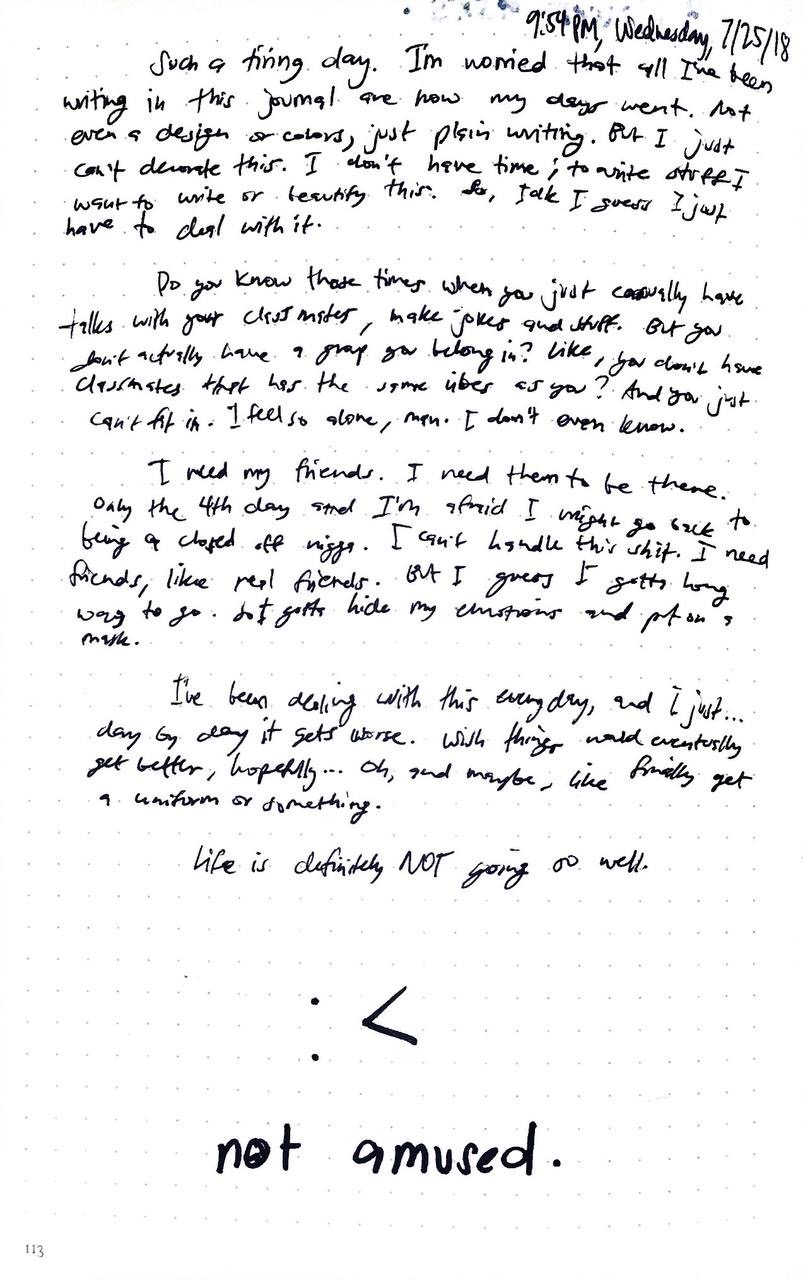 9:54 PM, Wednesday, 7/25/18
Such a tiring day. I'm worried that all I've been
writing in this journal are how my days went. Not
even a design or colors, just plain writing. But I just
can't decorate this. I don't have time; to write stuff I
want to write or beautify this. So, Idk I guess I just
have to deal with it.
Do you know those times when you just casually have
talks with your classmates, make jokes and stuff. But you
don't actually have a group you belong in? Like, you don't have
classmates that has the same vibes as you? And you just
can't fit in. I feel so alone, man. I don't even know.
I need my friends. I need them to be there.
Only the 4th day and I'm afraid I might go back to
being a closed off nigga. I can't handle this shit. I need
friends, like real friends. But I guess I gotta long
way to go. So I gotta hide my emotions and put on a
mask.
I've been dealing with this everyday, and I just...
day by day it gets worse. Wish things would eventually
get better, hopefully... Oh, and maybe, like finally get
a uniform or something.
Life is definitely NOT going so well.
: <
not amused.
113